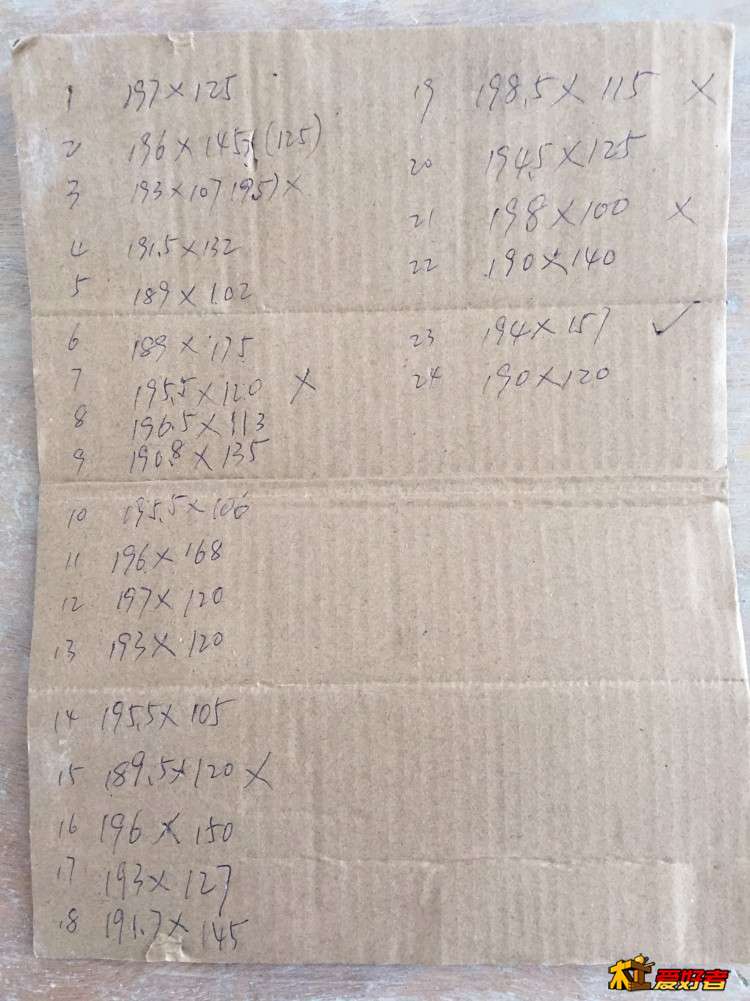 1 197×125
2 196×145×(125)
3 193×107(95)×
4 191.5×132
5 189×102
6 189×175
7 195.5×120 ×
8 196.5×113
9 190.8×135
10 195.5×106
11 196×168
12 197×120
13 193×120
14 195.5×105
15 189.5×120×
16 196×150
17 193×127
18 191.7×145
19 198.5×115 ×
20 194.5×125
21 198×100 ×
22 190×140
23 194×157 ✓
24 190×120
木工爱好者